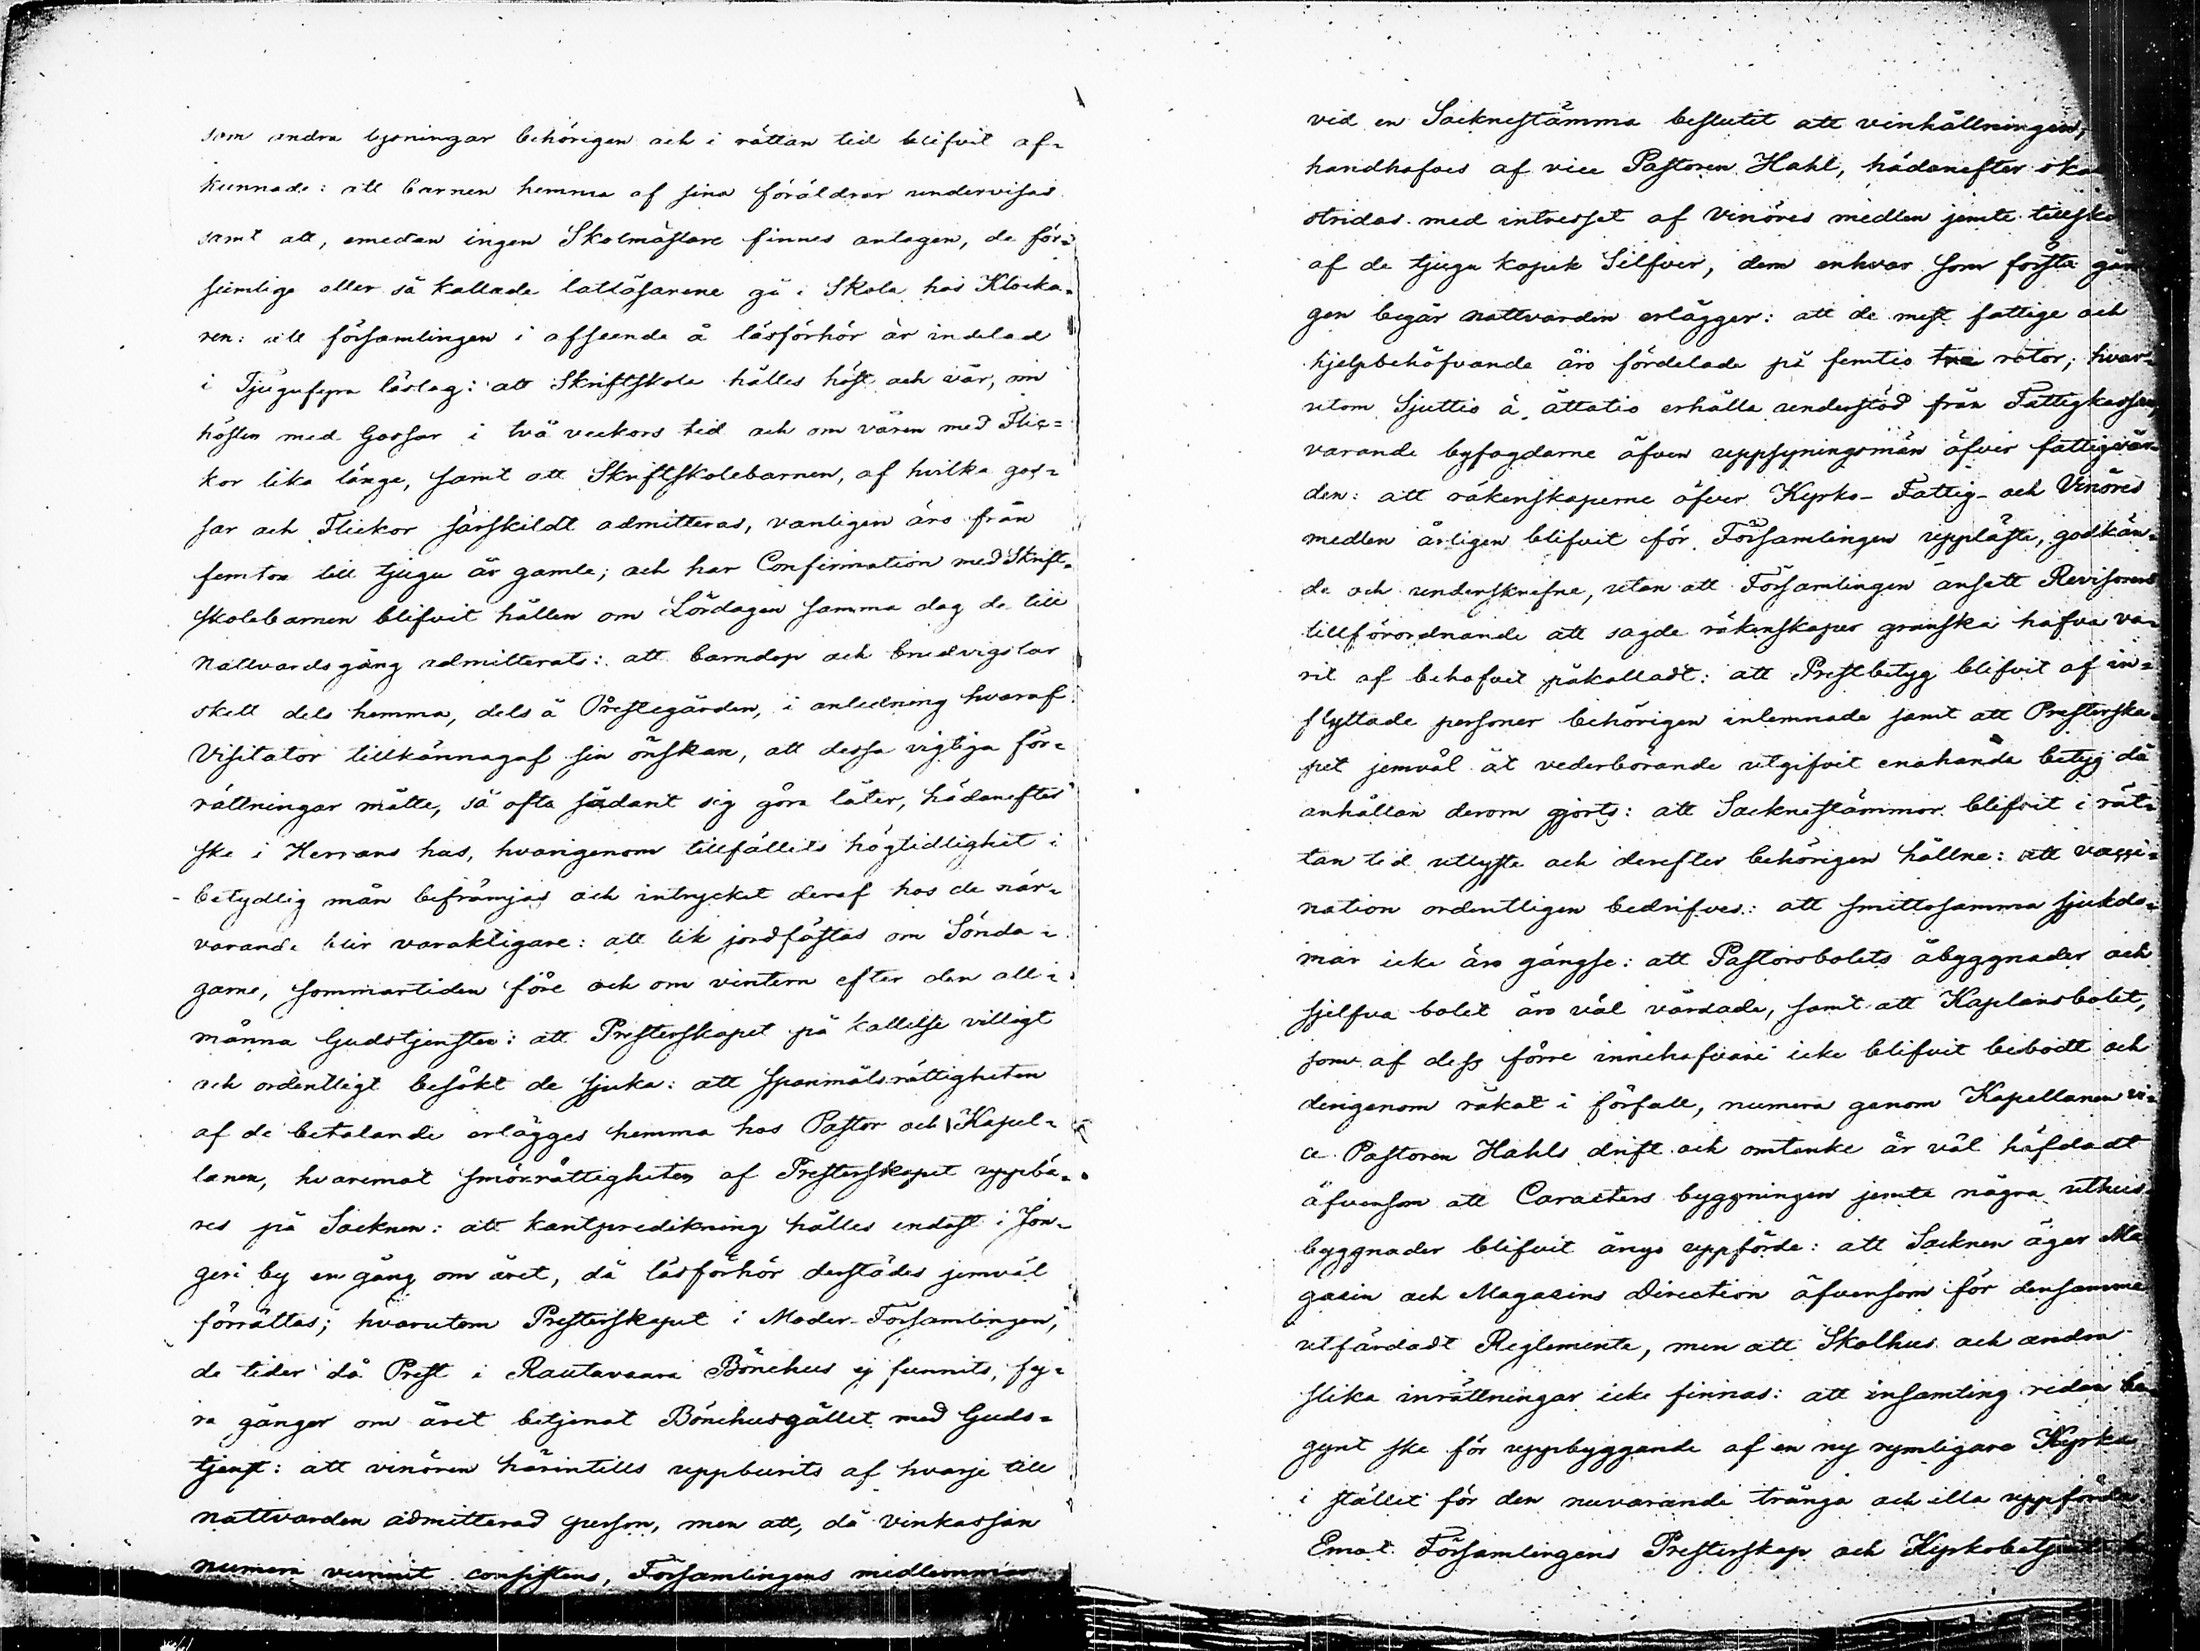 som andra lysningar behörigen och i rättan tid blifvit af=
kunnade: att barnen hemma af sina föräldrar undervisas
samt att, emedan ingen Skolmästare finnes antagen, de för=
sumlige eller så kallade lattläsarene gå i Skola hos Klocka=
ren: att församlingen i afseende å läsförhör är indelad
i Tjugufyra läslag: att Skriftskola hålles höst och vår, om
hösten med Gossar i två veckors tid och om våren med Flic=
kor lika länge, samt att Skriftskolebarnen, af hvilka gos=
sar och Flickor särskildt admitteras, vanligen äro från
femton till tjugu år gamle; och har Confirmation med Skrift=
skolebarnen blifvit hållen om Lördagen samma dag de till
nattvardsgång admitterats: att barndop och brudvigslar
skett dels hemma, dels å Prestegården, i anledning hvaraf
Visitator tillkännagaf sin önskan, att dessa vigtiga för=
rättningar måtte, så ofta sådant sig göra låter, hädanefter
ske i Herrans hus, hvarigenom tillfällets högtidlighet i
betydlig mån befrämjas och intrycket deraf hos de när=
varande blir varaktigare: att lik jordfästas om Sönda=
garne, sommartiden före och om vintern efter den all=
männa Gudstjensten: att Presterskapet på kallelse villigt
och ordentligt besökt de sjuka: att spanmålsrättigheten
af de betalande erlägges hemma hos Pastor och Kapel=
lanen, hvaremot smörrättigheten af Presterskapet uppbä=
res på Socknen: att kantpredikning hålles endast i Jon=
geri by en gång om året, då läsförhör derstädes jemväl
förrättas; hvarutom Presterskapet i Moder-Församlingen,
de tider då Prest i Rautavaara Bönehus ej funnits, fy=
ra gånger om året betjenat Bönehusgället med Guds=
tjenst: att vinören härintills uppburits af hvarje till
nattvarden admitterad person, men att, då vinkassan
numera vunnit consistens, Församlingens medlemmar
vid en Socknestämma beslutit att vinhållningen,
handhafves af vice Pastoren Hahl, hädanefter ska
stridas med intresset af vinöres medlen jemte tillsko
af de tjugu kopek Silfver, dem enhvar som första gån
gen begår nattvarden erlägger: att de mest fattige och
hjelpbehöfvande äro fördelade på femtio två rotor; hvar=
utom Sjuttio à åttatio erhålla understöd från Fattigkassan,
varande byfogdarne äfven uppsyningsmän öfver fattigvår=
den: att räkenskaperne öfver Kyrko- Fattig- och Vinöres
medlen årligen blifvit för Församlingen uppläste, godkän=
de och underskrefne, utan att Församlingen ansett Revisorers
tillförordnande att sagde räkenskaper granska hafva va=
rit af behofvet påkalladt: att Prestbetyg blifvit af in=
flyttade personer behörigen inlemnade samt att Presterska=
pet jemväl åt vederbörande utgifvit enahanda betyg då
anhållan derom gjorts: att Socknestämmor blifvit i rät=
tan tid utlyste och derefter behörigen hållne: att vacci=
nation ordentligen bedrifves: att smittosamma sjukdo=
mar icke äro gängse: att Pastorsbolets åbyggnader och
sjelfva bolet äro väl vårdade, samt att Kaplansbolet,
som af dess förre innehafvare icke blifvit bebodt och
derigenom råkat i förfall, numera genom Kapellanen vi=
ce Pastoren Hahls drift och omtanke är väl häfdadt
äfvensom att Caracters byggningen jemte några uthus=
byggnader blifvit ånyo uppförde: att Socknen äger Ma
gasin och Magasins Direction äfvensom för densamma
utfärdadt Reglemente, men att Skolhus och andra
slika inrättningar icke finnas: att insamling redan be=
gynt ske för uppbyggande af en ny rymligare Kyrka
i stället för den nuvarande trånga och illa uppförda.
Emot Församlingens Presterskap och Kyrkobetjente